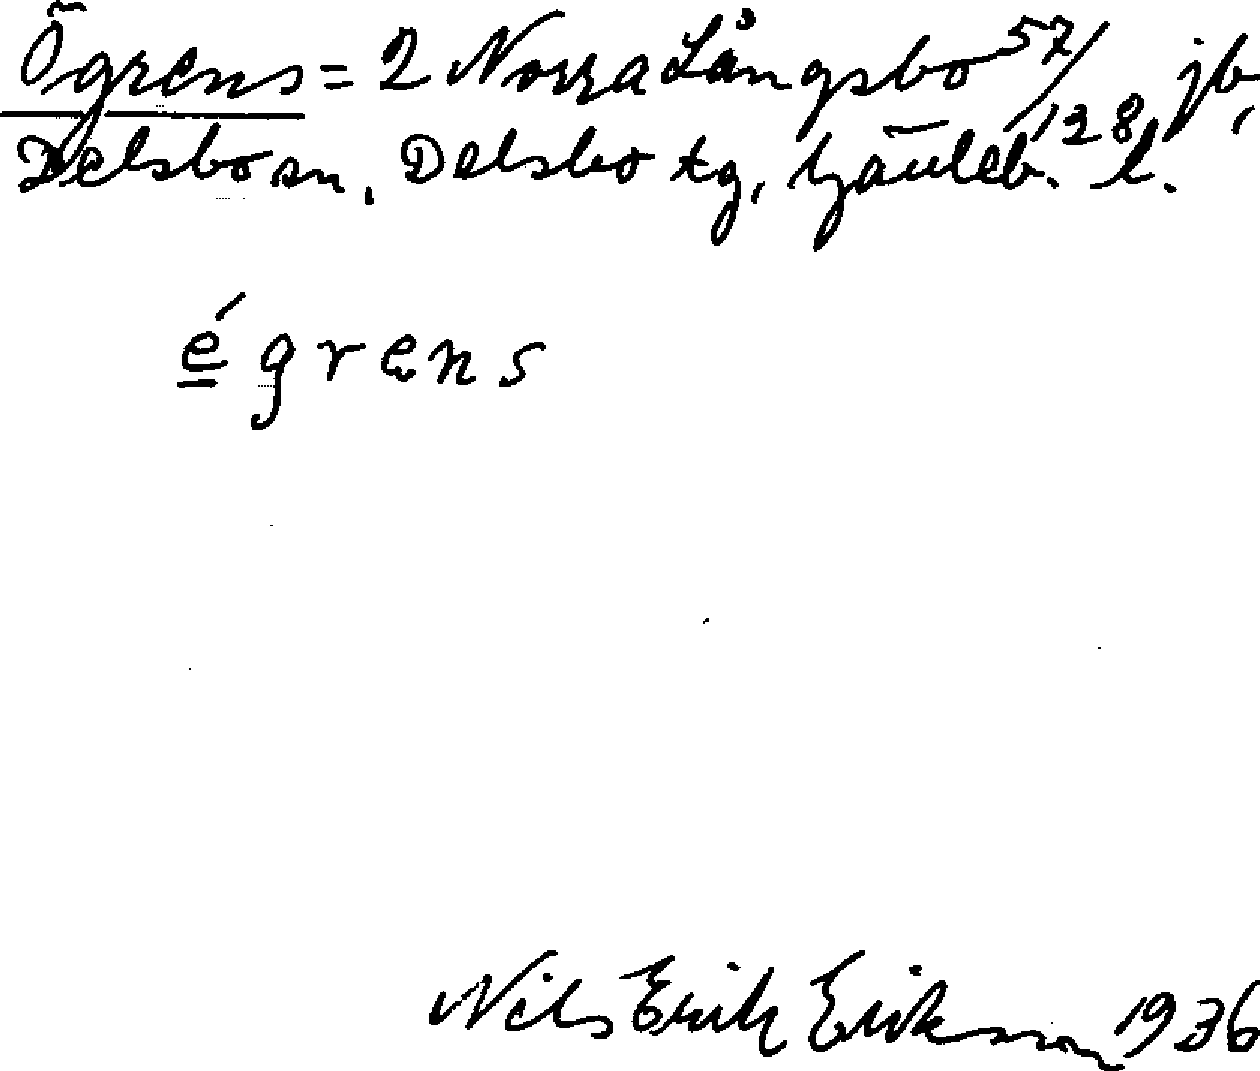 Ögrens = 2 Norra Långsbo 57/128 jb,
Delsbo sn, Delsbo tg, Gävleb. l.
é g r e n s
Nils Erik Erikson 1936